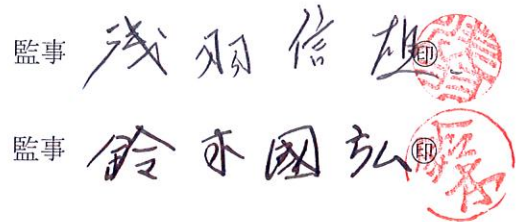 監事 浅羽信雄 ㊞
監事 鈴木國弘 ㊞